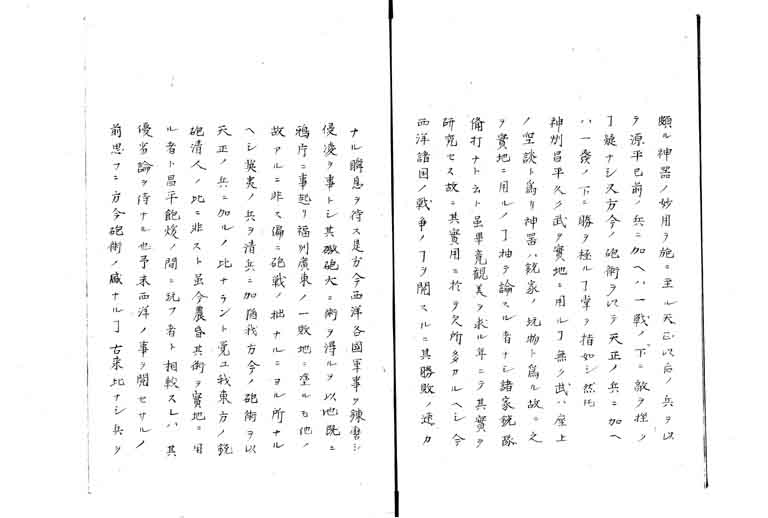 頗ル神器ノ妙用ヲ施ニ至ル天正以后ノ兵ヲ以
ヲ源平已前ノ兵ニ加ヘハ一戦ノ下ニ敵ヲ挫ク
ヿ疑ナシ又方今ノ砲術ヲ以テ天正ノ兵ニ加ヘ
ハ一發ノ下ニ勝ヲ極ルヿ掌ヲ指如シ然𪜈
神州昌平久ク武ヲ實地ニ用ルヿ無ク武ハ座上
ノ空談ト爲リ神器ハ銃家ノ玩物ト爲ル故ニ之
ヲ實地ニ用ルノヿ抻テ論スル者ナシ諸家銃隊
備打ナト云ト雖畢竟観美ヲ求ル年ニテ其實ヲ
研究セス故ニ其實用ニ於テ欠所多カルヘシ今
西洋諸国ノ戦争ノヿヲ聞スルニ其勝敗ノ速カ
ナル瞬息ヲ待ス是方今西洋各國軍事ヲ錬磨シ
侵凌ヲ事トシ其砲大ニ術ヲ得ルヲ以也既ニ
鴉片ニ事起リ福州廣東ノ一敗地ニ塗ルモ他ノ
故アルニ非ス偏ニ砲戦ノ拙ナルニヨル所ナル
ヘシ英夷ノ兵ヲ清兵ニ加ル我方今ノ砲術ヲ以
天正ノ兵ニ加ルノ比ナラント覚ユ我東方ノ銃
砲清人ノ比ニ非スト雖今農昏其術ヲ實地ニ用
ル者ト昌平飽煖ノ間ニ玩フ者ト相較スレハ其
優劣論ヲ待ナル也予未西洋ノ事ヲ聞セサルノ
前思フニ方今砲術ノ盛ナルヿ古来比ナシ兵ヲ